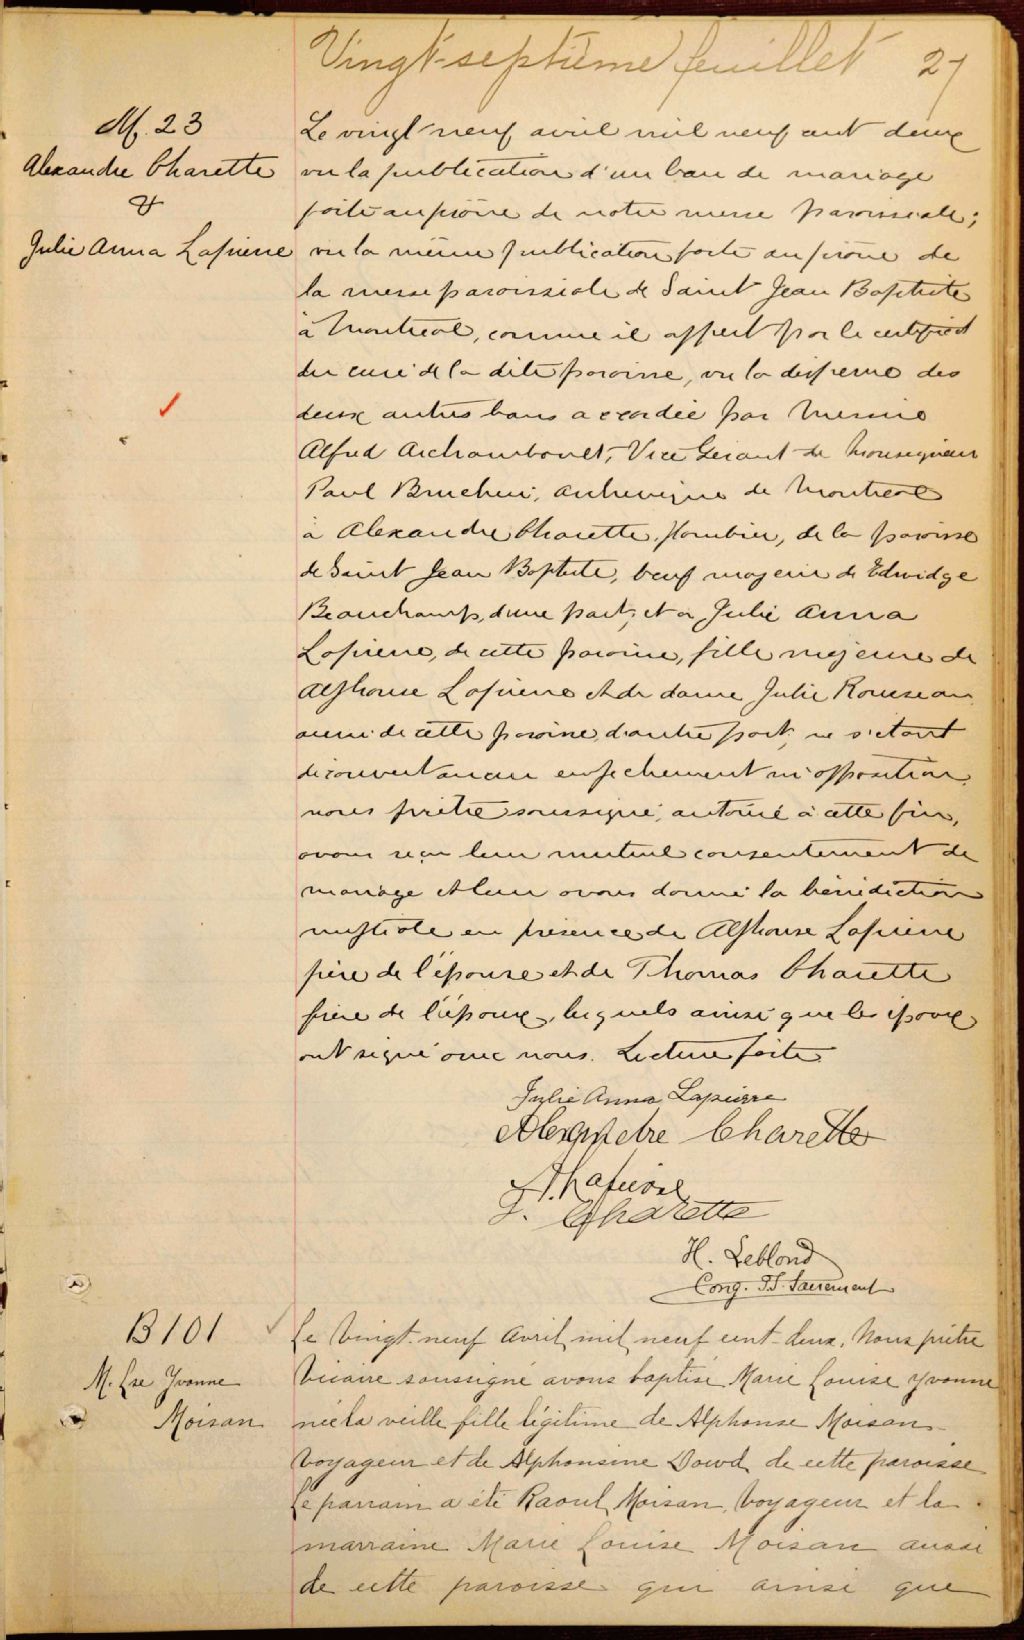 Vingt-septième feuillet 27
M. 23
Alexandre Charette
&
Julie Anna Lapierre
Le vingt-neuf avril mil neuf cent deux
vu la publication d'un ban de mariage
faite au prône de notre messe paroissiale;
vu la même publication faite au prône de
la messe paroissiale de Saint Jean Baptiste
à Montréal, comme il appert par le certificat
du curé de la dite paroisse, vu la dispense des
deux autres bans accordée par Messire
Alfred Archambault, Vice Gérant de Monseigneur
Paul Bruchesi, archevêque de Montréal
à Alexandre Charette, plombier, de la paroisse
de Saint Jean Baptiste, veuf majeur de Edwidge
Beauchamp, d'une part, et à Julie Anna
Lapierre, de cette paroisse, fille majeure de
Alphonse Lapierre et de dame Julie Rousseau
aussi de cette paroisse, d'autre part, ne s'étant
découvert aucun empêchement ni opposition,
nous prêtre soussigné, autorisé à cette fin,
avons reçu leur mutuel consentement de
mariage et leur avons donné la bénédiction
nuptiale en présence de Alphonse Lapierre
père de l'épouse et de Thomas Charette
frère de l'époux, lesquels ainsi que les époux
ont signé avec nous. Lecture faite.
Julie Anna Lapierre
Alexandre Charette
A. Lapierre
T. Charette
H. Leblond
Cong. T.S. Sacrement
B 101
M. Lse Yvonne
Moisan
Le vingt-neuf Avril mil neuf cent-deux, Nous prêtre
Vicaire soussigné avons baptisé Marie Louise Yvonne
née la veille fille légitime de Alphonse Moisan
voyageur et de Alphonsine Dowd de cette paroisse
Le parrain a été Raoul Moisan, voyageur et la
marraine Marie Louise Moisan aussi
de cette paroisse qui ainsi que